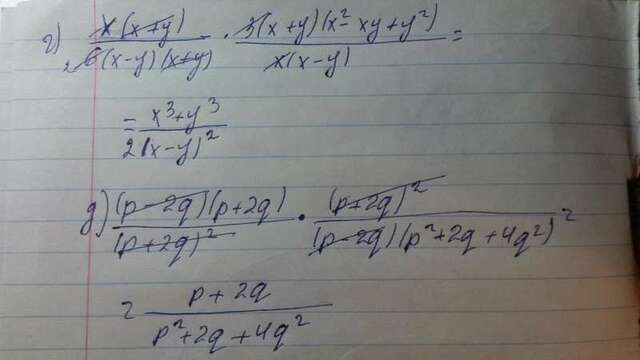 г) x(x+y) / 6(x-y)(x+y) 2 · 3(x+y)(x²-xy+y²) / x(x-y) =
= x³+y³ / 2(x-y)²
д) (p-2q)(p+2q) / (p+2q)² · (p+2q)² / (p-2q)(p²+2q+4q²) =
= p+2q / p²+2q+4q²